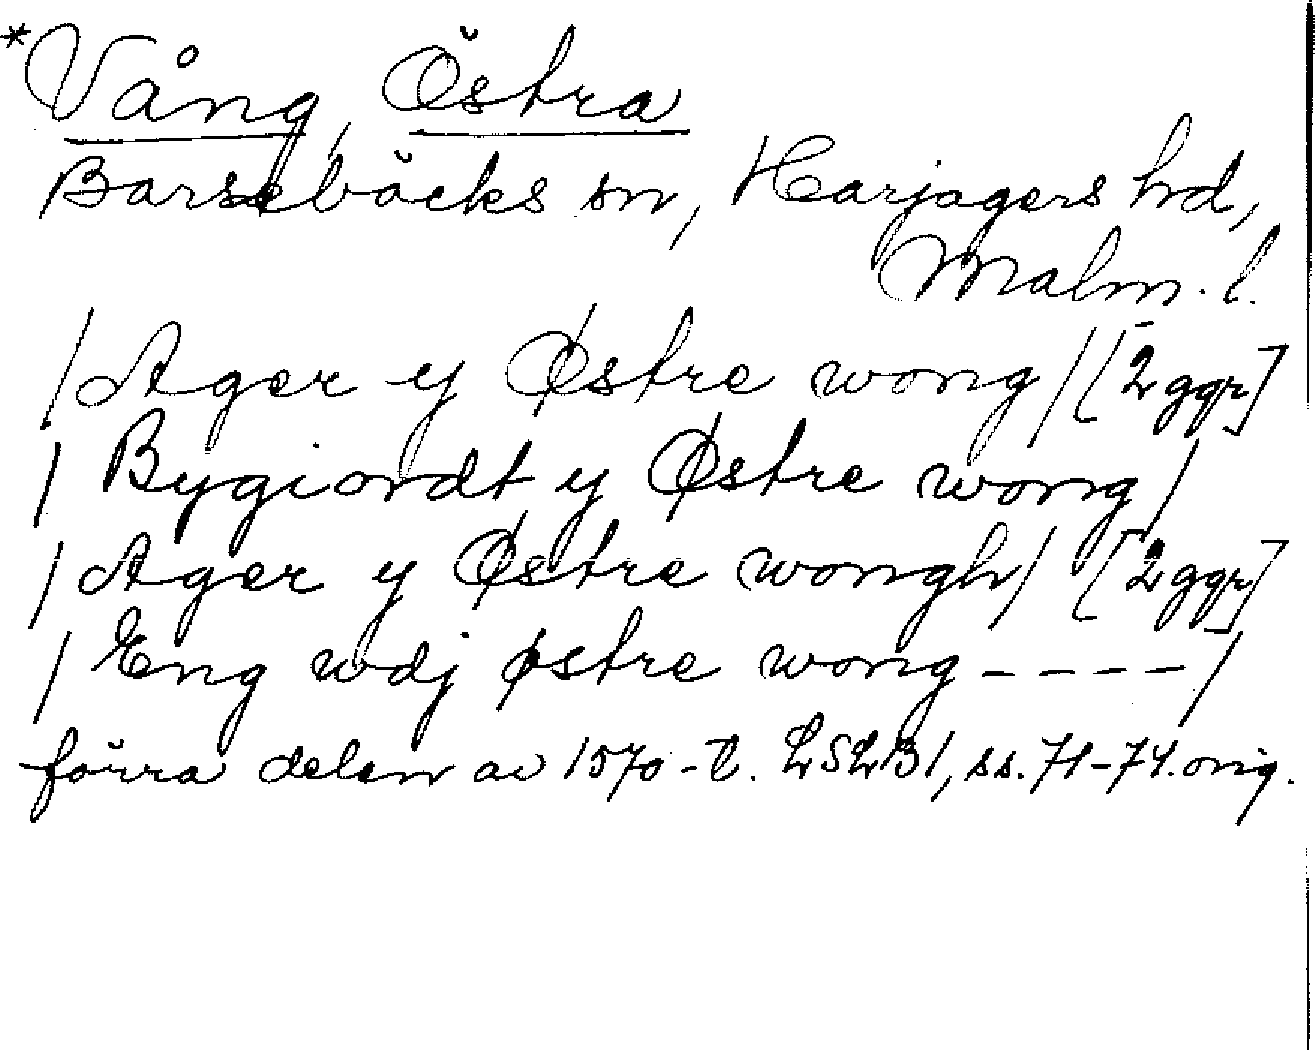 *Vång, Östra
Barsebäcks sn, Harjagers hd,
Malm. l.
/Ager y Østre wong/ [2 ggr]
/Bygiordt y Østre wong/
/Ager y Østre wongh/ [2 ggr]
/Eng wdj østre wong - - - - -/
förra delen av 1570-t. LSLB1, ss. 71-74. orig.